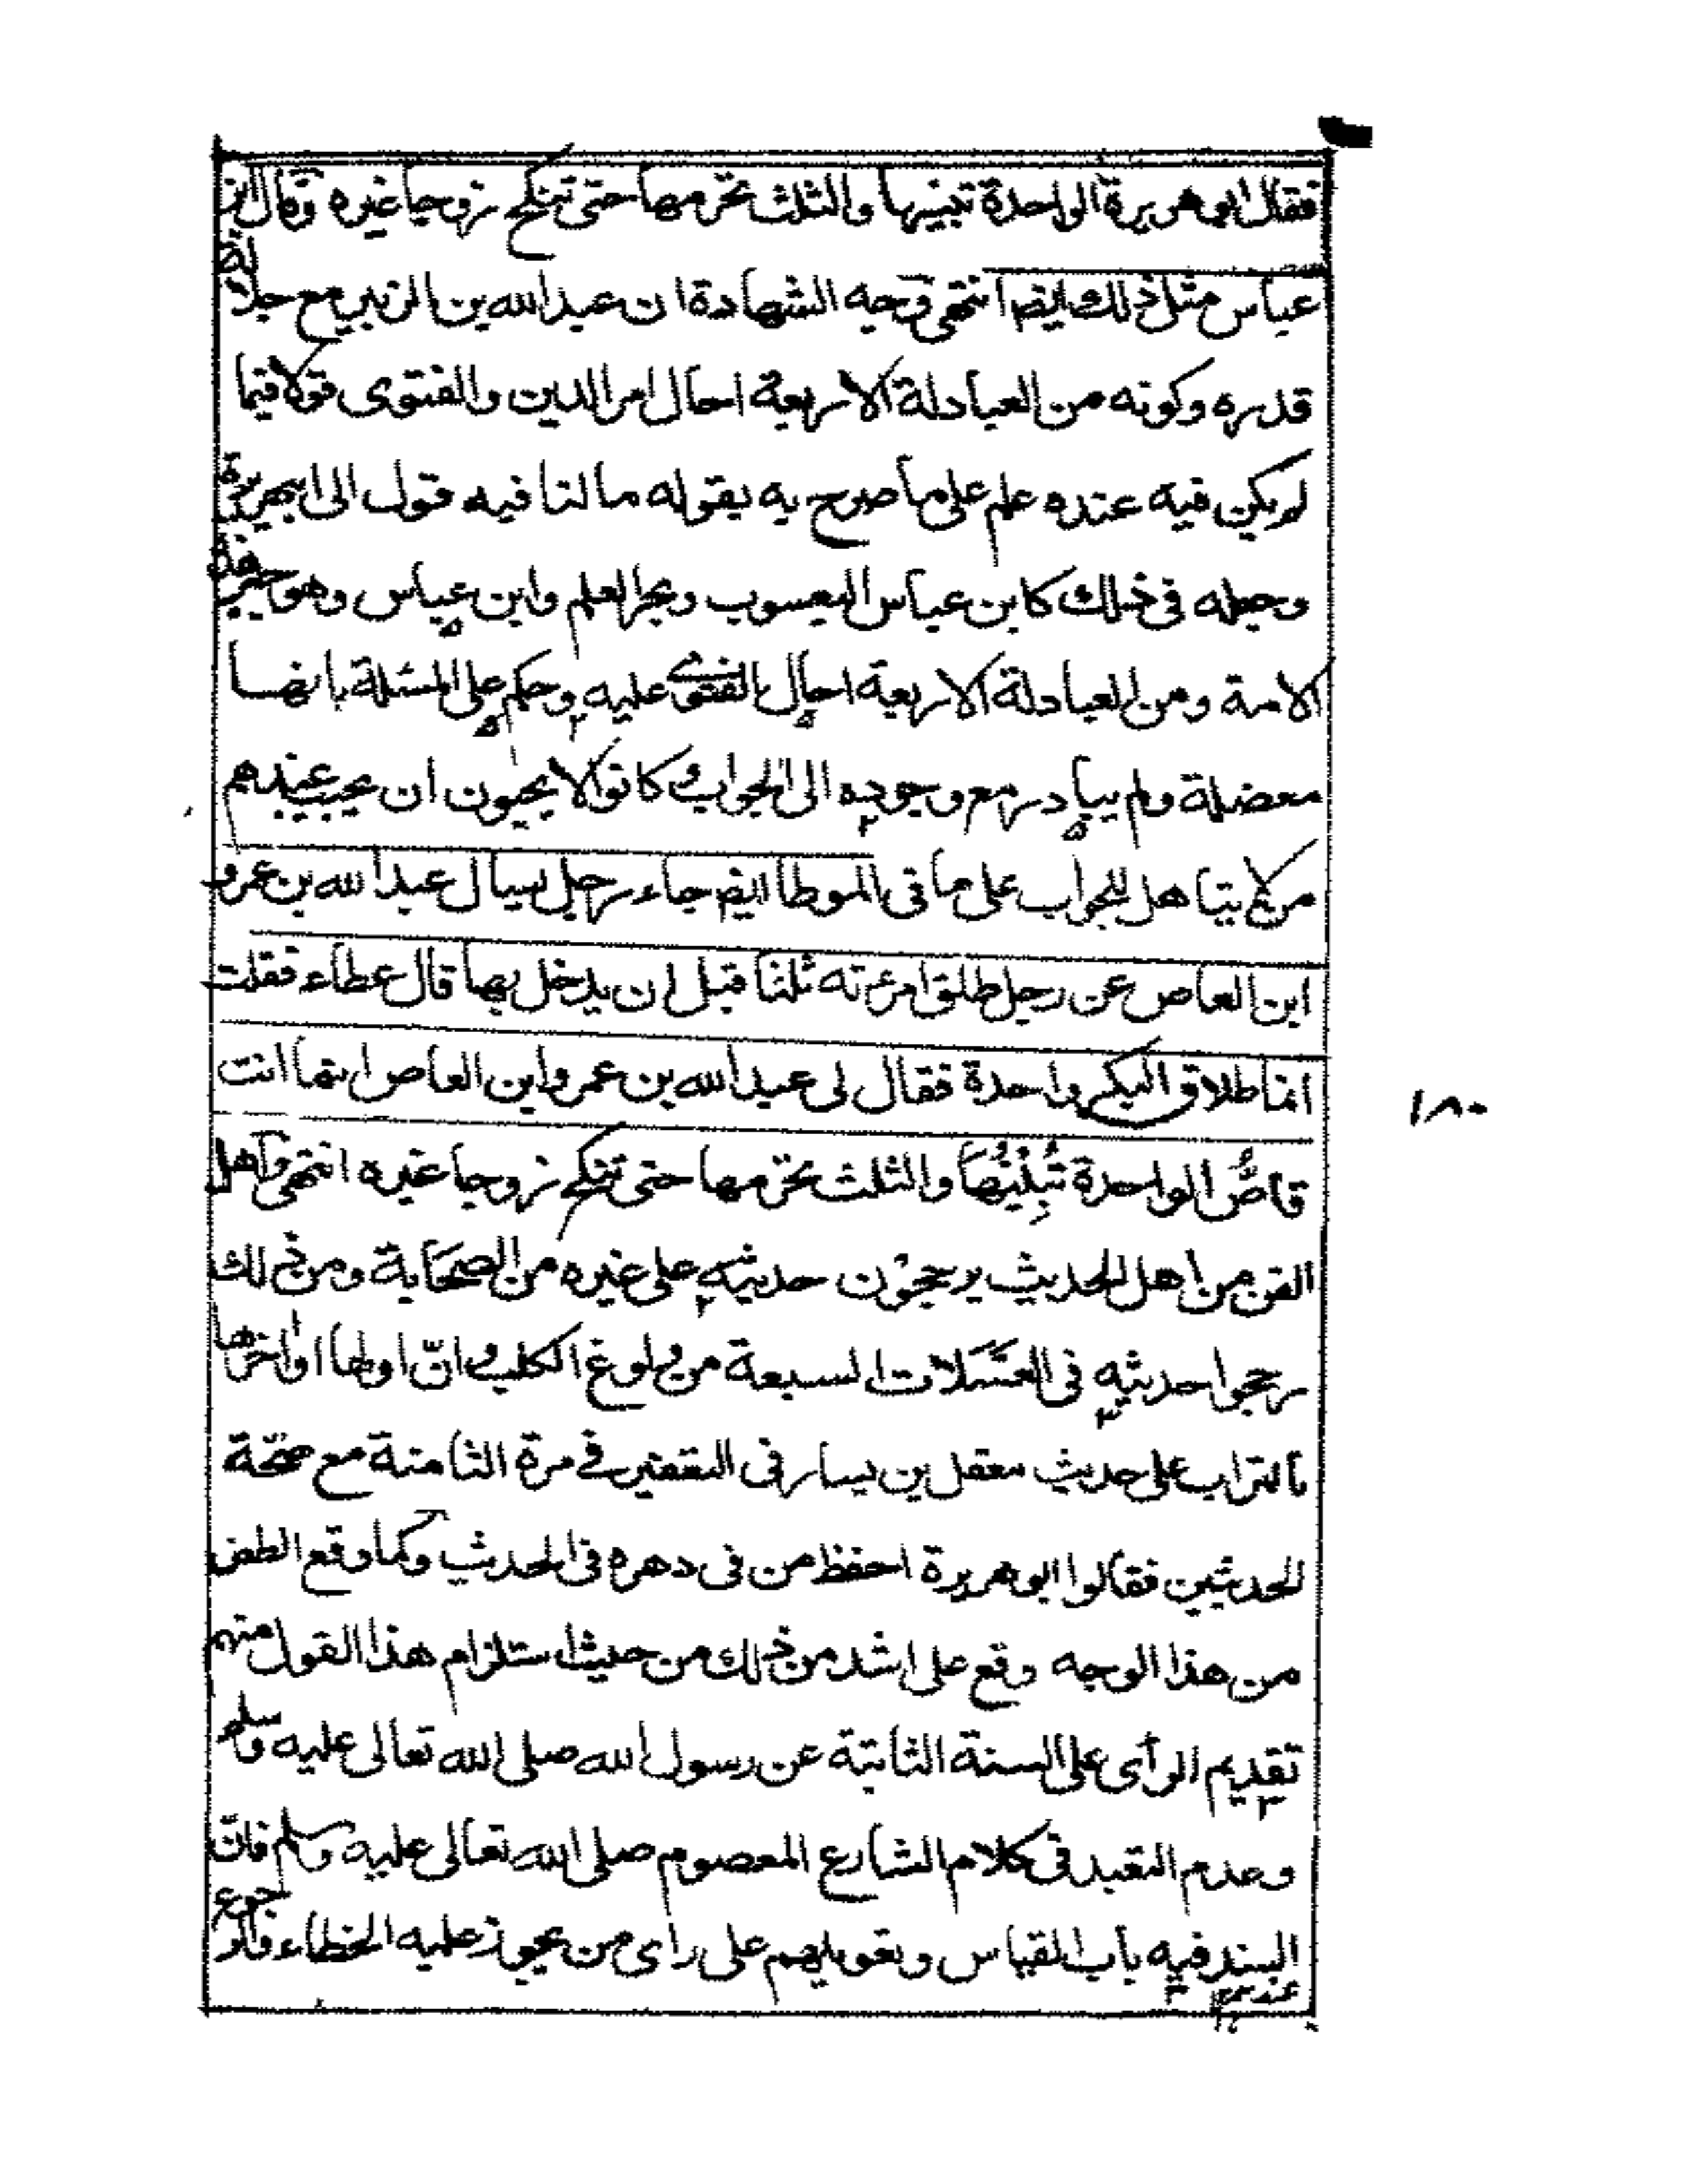 فقال ابو هريرة الواحدة تبينها والثلث تحرمها حتى تنكح زوجا غيره وقال ابن
عباس مثل ذلك ايضا انتهى وجه الشهادة ان عبد الله بن الزبير مع جلالة
قدره وكونه من العبادلة الاربعة احال امر الدين والفتوى قولا فيما
لم يكن فيه عنده علم على ما صرح به بقوله ما لنا فيه قول الى ابي هريرة
وجعله في ذلك كابن عباس اليعسوب وبحر العلم وابن عباس وهو حبر هذه
الامة ومن العبادلة الاربعة احال الفتوى عليه وحكم على المسئلة بانها
معضلة ولم يبادر مع وجوده الى الجواب وكانوا لا يحبون ان يجيب عندهم
من لم يتاهل للجواب على ما في الموطا ايضا جاء رجل يسال عبد الله بن عمرو
ابن العاص عن رجل طلق امرءته ثلثا قبل ان يدخل بها قال عطاء فقلت
انما طلاق البكر واحدة فقال لى عبد الله بن عمرو ابن العاص انما انت
١٨٠
قاصٌّ الواحدة تُبِيْنُهَا والثلث تحرمها حتى تنكح زوجا غيره انتهى واهل
الفن من اهل الحديث يرجحون حديثه على غيره من الصحابة ومن ذلك
رجحوا حديثه في الغسلات السبعة من ولوغ الكلب وانّ اولها او اخرها
بالتراب على حديث معقل بن يسار في التعفير في مرة الثامنة مع صحّة
الحديثين فقالوا ابو هريرة احفظ من في دهره في الحديث وكما وقع الطعن
من هذا الوجه وقع على اشد من ذلك من حيث استلزام هذا القول منهم
تقديم الرأى على السنة الثابتة عن رسول الله صلى الله تعالى عليه وسلم
وعدم التعبد في كلام الشارع المعصوم صلى الله تعالى عليه وسلم فانّ
فيه باب القياس وتعويلهم على راى من يجوز عليه الخطاء والرجوع